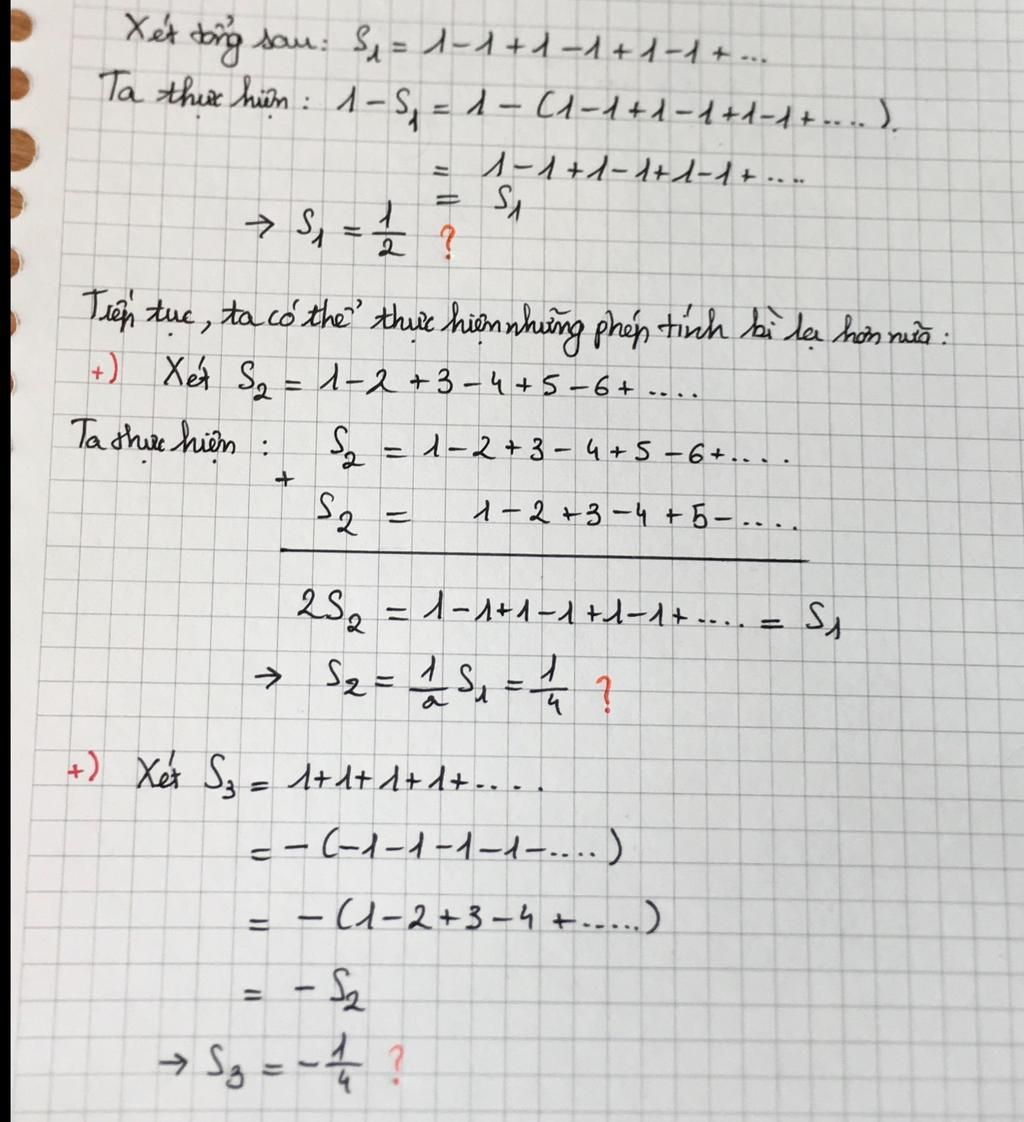 Xét tổng sau: S₁ = 1-1+1-1+1-1+...
Ta thực hiện: 1-S₁ = 1-(1-1+1-1+1-1+....).
= 1-1+1-1+1-1+....
= S₁
→ S₁ = 1/2 ?
Tiếp tục, ta có thể thực hiện những phép tính kì lạ hơn nữa:
+) Xét S₂ = 1-2+3-4+5-6+....
Ta thực hiện: S₂ = 1-2+3-4+5-6+....
+
S₂ = 1-2+3-4+5-....
2S₂ = 1-1+1-1+1-1+.... = S₁
→ S₂ = 1/2 S₁ = 1/4 ?
+) Xét S₃ = 1+1+1+1+....
= -(-1-1-1-1-....)
= -(1-2+3-4+.....)
= -S₂
→ S₃ = -1/4 ?